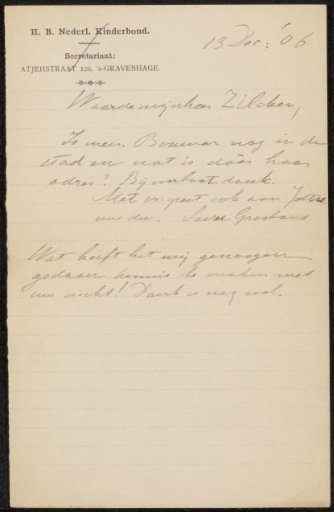 H. B. Nederl. Kinderbond.
Secretariaat:
ATJEHSTRAAT 126, 's-GRAVENHAGE.
13 Dec: '06
Waarde mijnheer Zilcken,
Is mevr. Bouwer nog in de
stad en wat is dàn haar
adres? Bij voorbaat dank.
Met een groet ook aan
Suze
Wat heeft het mij genoegen
gedaan kennis te maken met
uw nicht! Dank u nog wel.